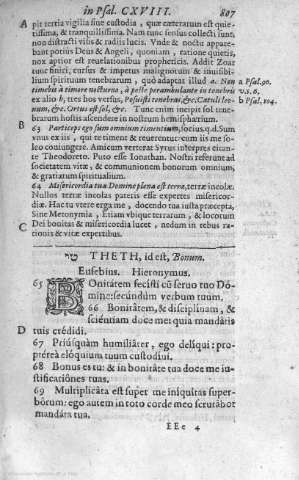 in Psal. CXVIII. 807
A pit tertia vigilia sine custodia, quæ cæterarum est quie-
tissima, & tranquillissima. Nam tunc sensus collecti sunt,
non distracti visis & radiis lucis. Vnde & noctu appare-
bant potius Deus & Angeli, quoniam, ratione quietis,
nox aptior est reuelationibus propheticis. Addit Zoar
tunc finiri, cursus & impetus malignorum & inuisibi-
lium spirituum tenebrarum, quò adaptat illud a. Non a Psal.90.
timebis à timore nocturno, à peste perambulante in tenebris v.5.6.
ex alio b, tres hos versus, Posuisti tenebras, &c. Catuli leo- b Psal.104.
num, &c. Ortus est sol, &c. Tunc enim incipit sol tene-
brarum hostis ascendere in nostrum hemisphærium.
B
63 Particeps ego sum omnium timentium, socius, q.d. Sum
vnus ex iis, qui te timent & reuerentur, cum iis me so-
leo coniungere. Amicum verterat Syrus interpres eican-
te Theodoreto. Puto esse Ionathan. Nostri referunt ad
societatem vitæ, & communionem bonorum omnium,
& gratiarum spiritualium.
64 Misericordia tua Domine plena est terra, terræ incolæ.
Nullos terræ incolas pateris esse expertes misericor-
diæ. Hac tu vtere erga me, docendo tua iusta præcepta,
Sine Metonymia, Etiam vbique terrarum, & locorum
C Dei bonitas & misericordia lucet, nedum in rebus ra-
tionis & vitæ expertibus.
טי THETH, id est, Bonum.
Eusebius. Hieronymus.
65 BOnitátem fecisti cū seruo tuo Dó-
mine: secúndùm verbum tuum.
66 Bonitátem, & disciplínam, &
sciéntiam doce me: quia mandátis
D tuis crédidi.
67 Priúsquam humiliárer, ego delíqui: pro-
ptéreà elóquium tuum custodíui.
68 Bonus es tu: & in bonitáte tua doce me iu-
stificatiónes tuas.
69 Multiplicáta est super me iníquitas super-
bórum: ego autem in toto corde meo scrutábor
mandáta tua.
EEe 4